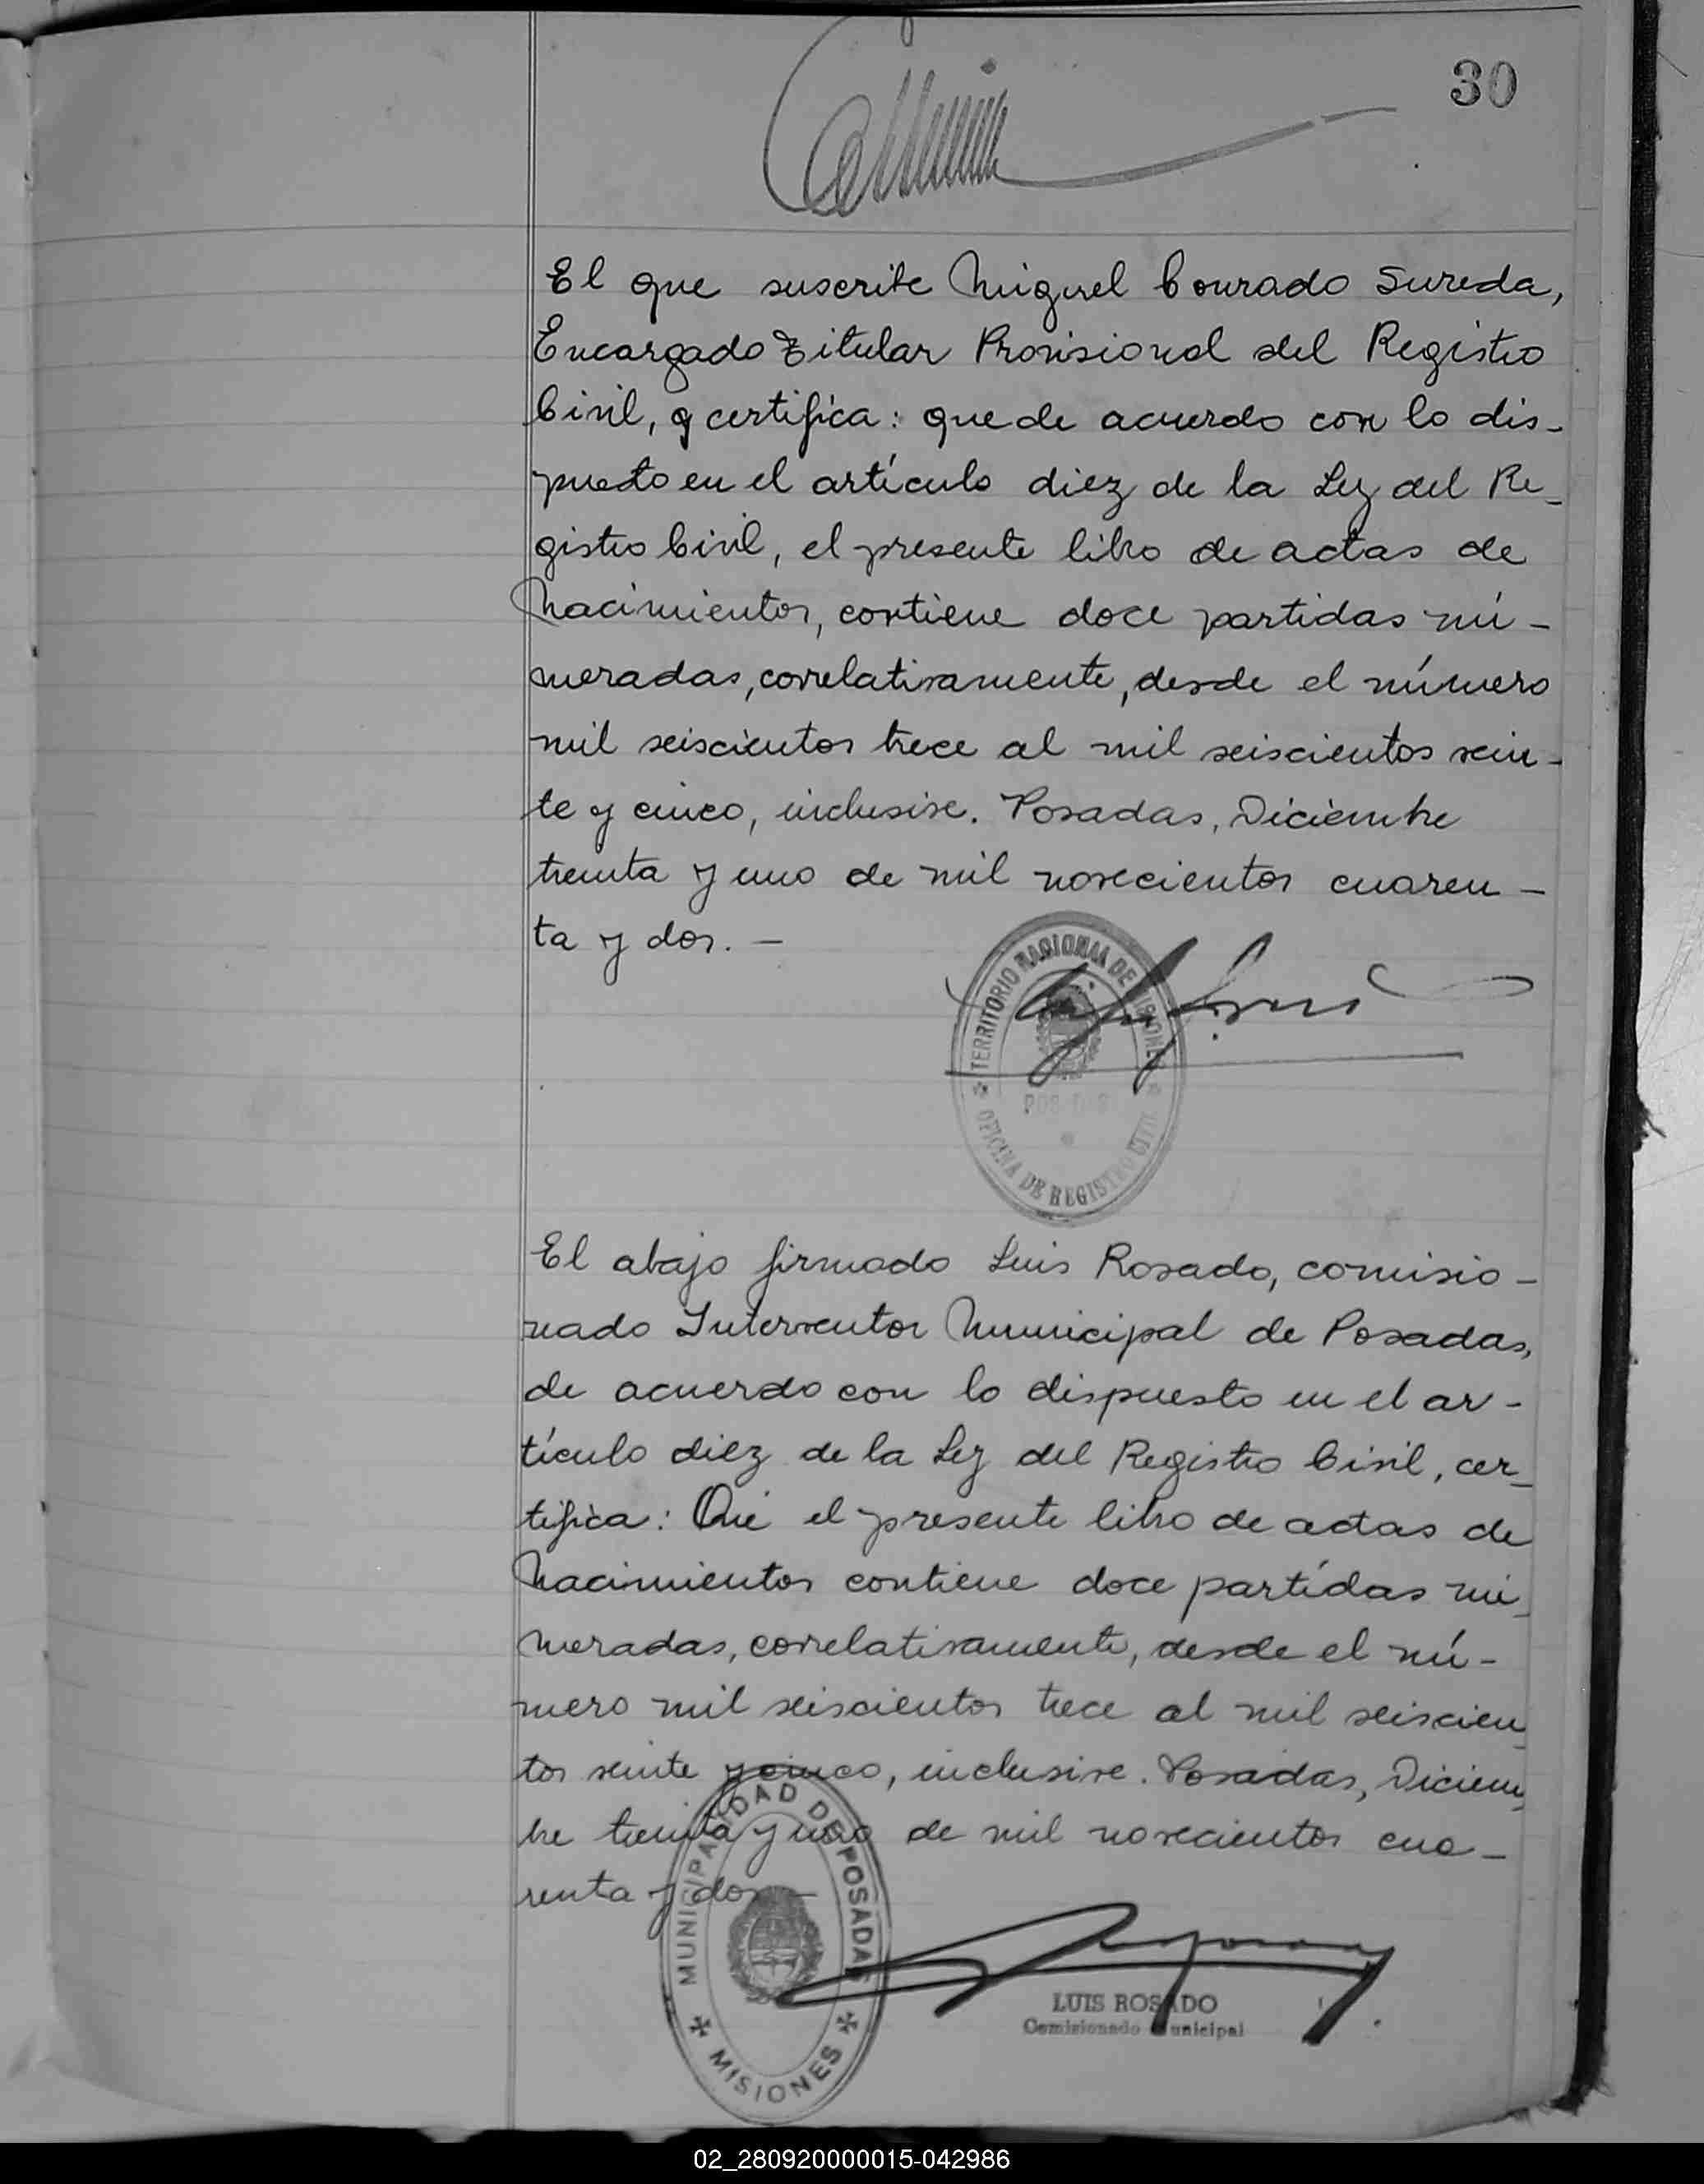 30
El que suscribe Miguel Conrado Sureda,
Encargado Titular Provisional del Registro
Civil, certifica: que de acuerdo con lo dis-
puesto en el artículo diez de la Ley del Re-
gistro Civil, el presente libro de actas de
Nacimientos, contiene doce partidas nú-
meradas, correlativamente, desde el número
mil seiscientos trece al mil seiscientos vein-
te y cinco, inclusive. Posadas, Diciembre
treinta y uno de mil novecientos cuaren-
ta y dos.-
TERRITORIO NACIONAL DE MISIONES
POSADAS
OFICINA DE REGISTRO CIVIL
El abajo firmado Luis Rosado, comisio-
nado Interventor Municipal de Posadas,
de acuerdo con lo dispuesto en el ar-
tículo diez de la Ley del Registro Civil, cer-
tifica: Que el presente libro de actas de
Nacimientos contiene doce partidas nu-
meradas, correlativamente, desde el nú-
mero mil seiscientos trece al mil seiscien-
tos veinte y cinco, inclusive. Posadas, Diciem-
bre treinta y uno de mil novecientos cua-
renta y dos.-
MUNICIPALIDAD DE POSADAS
MISIONES
LUIS ROSADO
Comisionado Municipal
02_280920000015-042986